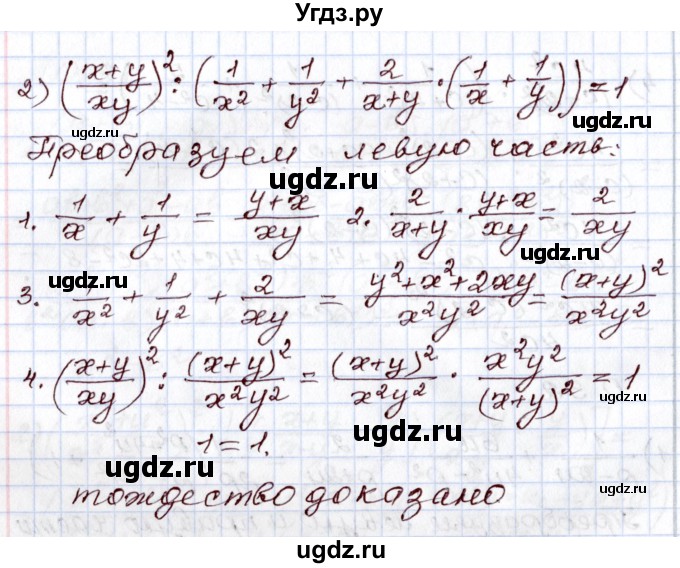 Угдз.ру
2) ((x+y)/(xy))² : (1/x² + 1/y² + 2/(x+y) · (1/x + 1/y)) = 1
ugdz.ru ugdz.ru ugdz.ru
Преобразуем левую часть:
ugdz.ru
1. 1/x + 1/y = (y+x)/(xy) 2. 2/(x+y) · (y+x)/(xy) = 2/(xy)
ugdz.ru ugdz.ru
3. 1/x² + 1/y² + 2/(xy) = (y²+x²+2xy)/(x²y²) = (x+y)²/(x²y²)
ugdz.ru
4. ((x+y)/(xy))² : (x+y)²/(x²y²) = (x+y)²/(x²y²) · x²y²/(x+y)² = 1
ugdz.ru ugdz.ru
1 = 1.
тождество доказано
ugdz.ru ugdz.ru
ugdz.ru